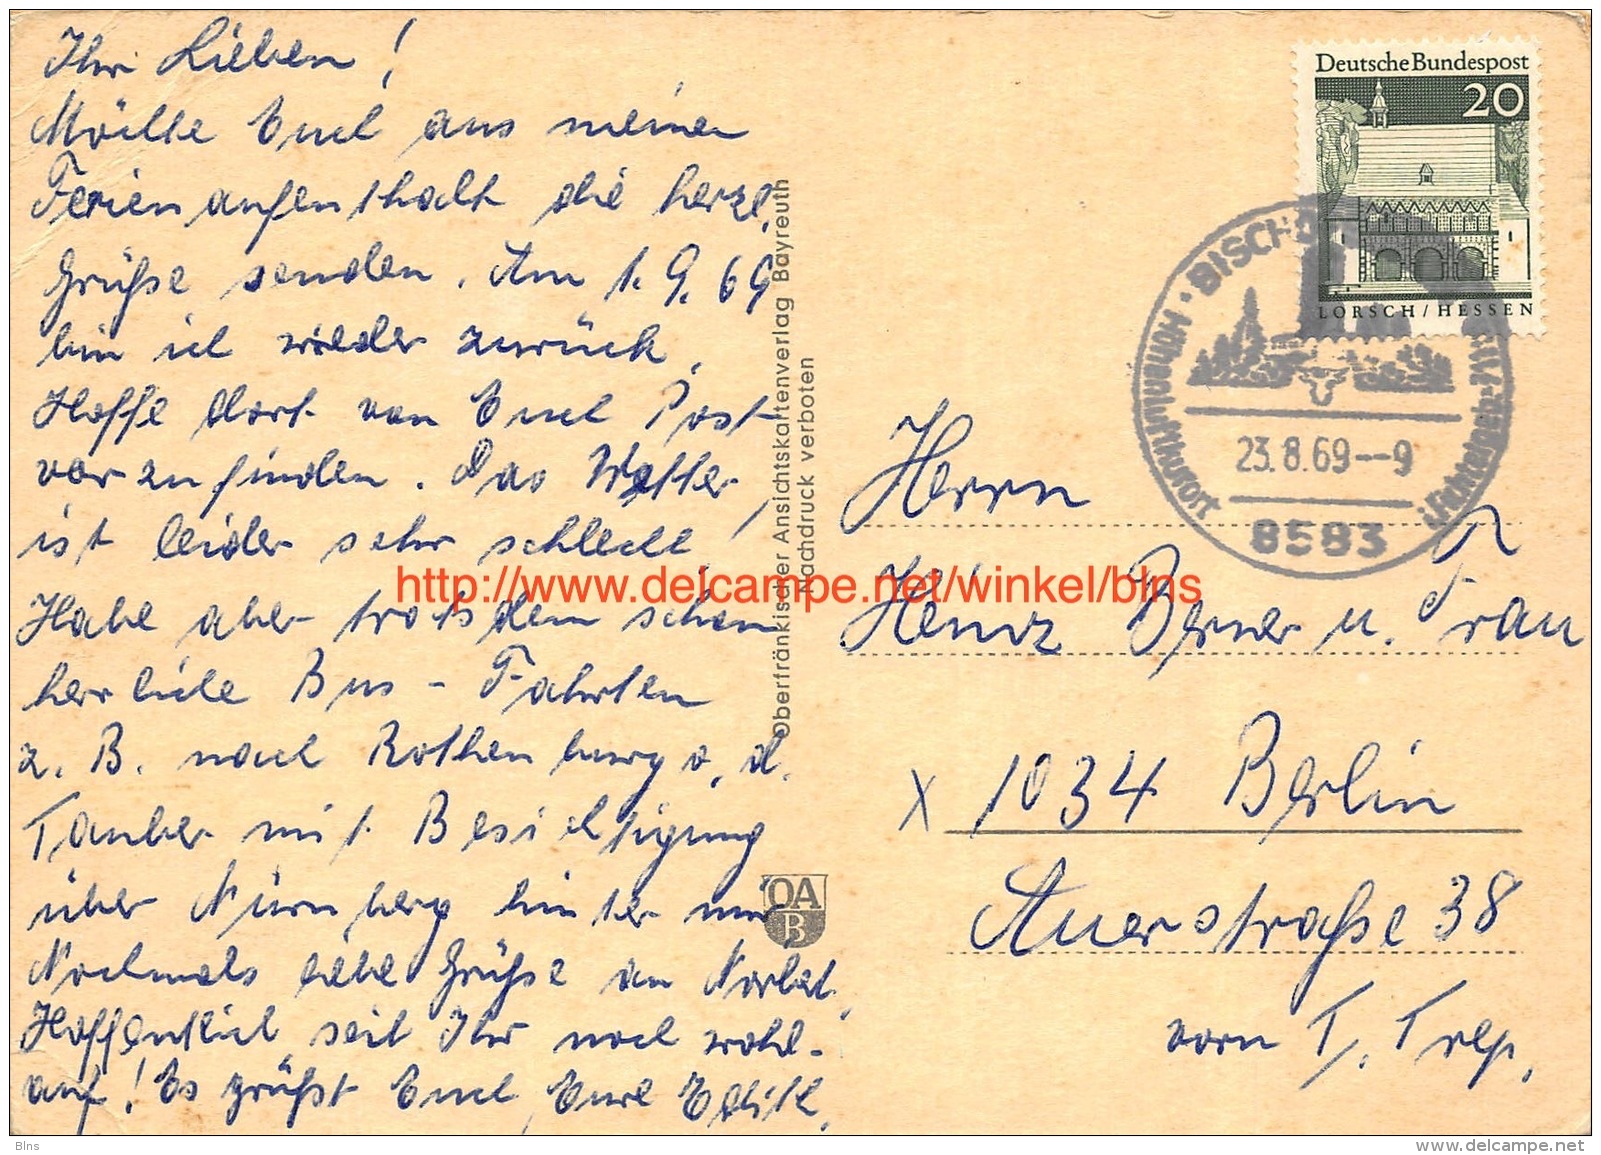 Ihr Lieben!
Möchte Euch aus meinen
Ferienaufenthalt die herzl.
Grüße senden. Am 1.9.69
bin ich wieder zurück,
Hoffe dort von Euch Post
vorzufinden. Das Wetter
ist leider sehr schlecht!
Habe aber trotzdem schon
herrliche Bus-Fahrten
z. B. nach Rothenburg o. d.
Tauber mit Besichtigung
über Nürnberg hinter mir
Nochmals liebe Grüße an Norbert.
Hoffentlich seit Ihr noch wohl-
auf! Es grüßt Euch Eure Edith.
Oberfränkischer Ansichtskartenverlag Bayreuth
Nachdruck verboten
OA
B
Deutsche Bundespost
20
LORSCH/HESSEN
Höhenluftkurort · BISCHOFSGRÜN
23.8.69--9
8583
Herrn
Heinz Berner u. Frau
X 1034 Berlin
Auerstraße 38
vorn T. Trep.
http://www.delcampe.net/winkel/blns
Blns
www.delcampe.net